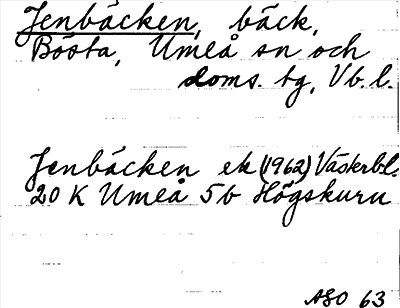 Jenbäcken, bäck,
Bösta, Umeå sn och
doms. tg, Vb. l.
Jenbäcken ek (1962) Västerbl.
20 K Umeå 5b Högskuru
ASO 63